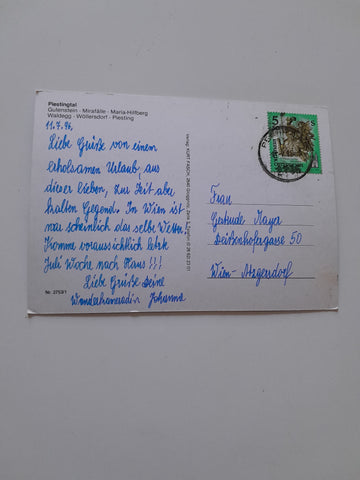 Piestingtal
Gutenstein - Mirafälle - Maria-Hilfberg
Waldegg - Wöllersdorf - Piesting
11.7.96.
Liebe Grüße von einem
erholsamen Urlaub, aus
dieser lieben, zur Zeit aber
kalten Gegend. In Wien ist
war scheinlich das selbe Wetter.
Komme voraussichtlich letzte
Juli Woche nach Haus !!!
Liebe Grüße Deine
Wanderkameradin Johanna
Nr. 2753/1
Verlag: KURT FASCH
5 S
Frau
Gertrude Mayer
Deißenhofergasse 50
Wien-Atzgersdorf